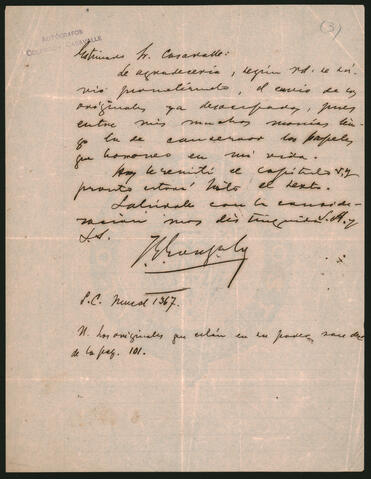 (3)
AUTÓGRAFOS
COLECCIÓN CASAVALLE
Estimado Sr. Casavalle:
Le agradecería, según Vd. se sir-
vió prometérmelo, el envío de los
originales ya desocupados, pues
entre mis muchas manías ten-
go la de conservar los papeles
que borroneo en mi vida.
Hoy le remití el capítulo V. y
pronto estará listo el resto.
Salúdale con la conside-
ración mas distinguida S. A. y
S. S.
S. C. 1367.
N. Los originales que están en su poder, son
de la pag. 101.